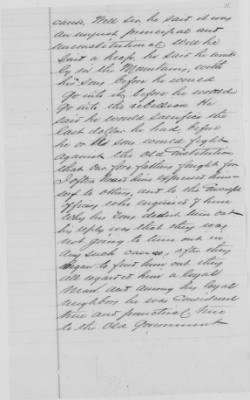 cause Well Sir he said it was
an unjust principal and
unconstitutional Well he
Said a heap he said he would
by in the Mountains, with
his Sons before he would
Go into it, before he would
Go into the rebellion He
said he would sacrifice the
last dollar he had, before
he or his sons would fight
against the old institution
that our fore fathers fought for
I often heard him express him
self to others, and to the
Officers who inquired of him
why his Sons didnt turn out
his reply was that they was
not going to turn out in
any such cause. after they
began to find him out they
all regarded him a loyal
Man and among his loyal
neighbors he was considered
true and punctual true
to the Old Government